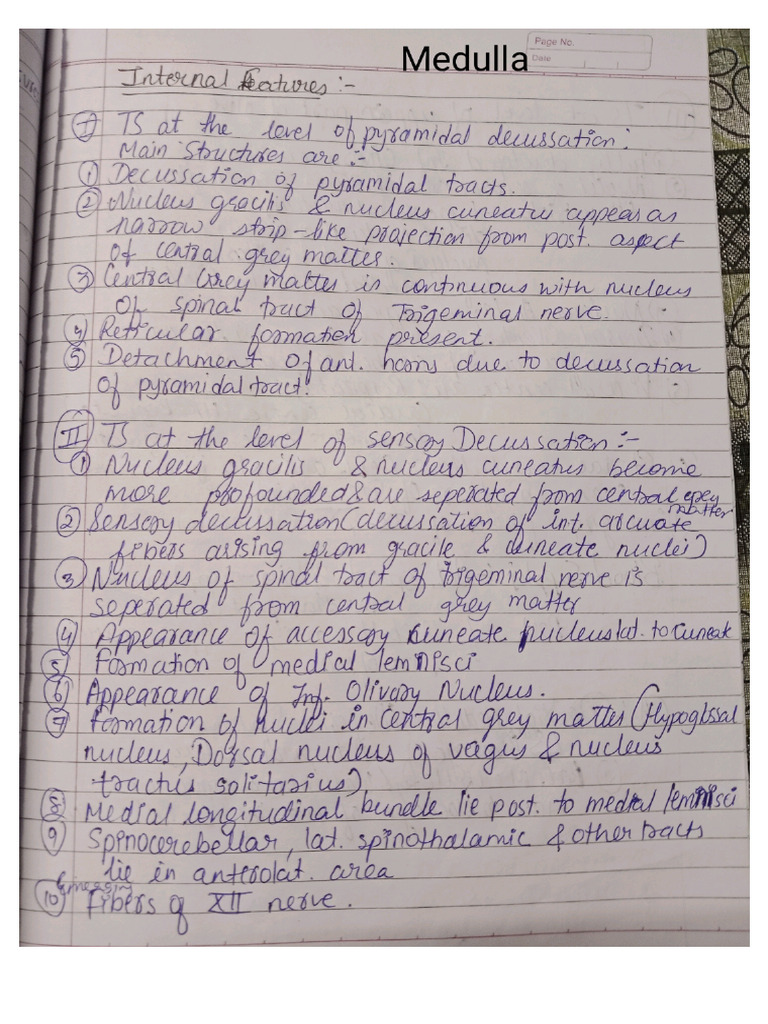 Medulla
Page No.
Date
Internal features :-
I TS at the level of pyramidal decussation:
Main structures are :-
1 Decussation of pyramidal tracts.
2 Nucleus gracilis & nucleus cuneatus appear as
narrow strip-like projection from post. aspect
of central grey matter.
3 Central Grey matter is continuous with nucleus
of spinal tract of Trigeminal nerve.
4 Reticular formation present.
5 Detachment of ant. horns due to decussation
of pyramidal tract.
II TS at the level of sensory Decussation :-
1 Nucleus gracilis & nucleus cuneatus become
more profounded & are seperated from central grey
matter
2 Sensory decussation (decussation of int. arcuate
fibers arising from gracile & cuneate nuclei)
3 Nucleus of spinal tract of trigeminal nerve is
seperated from central grey matter
4 Appearance of accessory cuneate nucleus lat. to cuneate
5 Formation of medial lemnisci
6 Appearance of Inf. Olivary Nucleus.
7 Formation of nuclei in central grey matter (Hypoglssal
nucleus, Dorsal nucleus of vagus & nucleus
tractus solitarius)
8 Medial longitudinal bundle lie post. to medial lemnisci
9 Spinocerebellar, lat. spinothalamic & other tracts
lie in anterolat. area
10 Emerging Fibers of XII nerve.